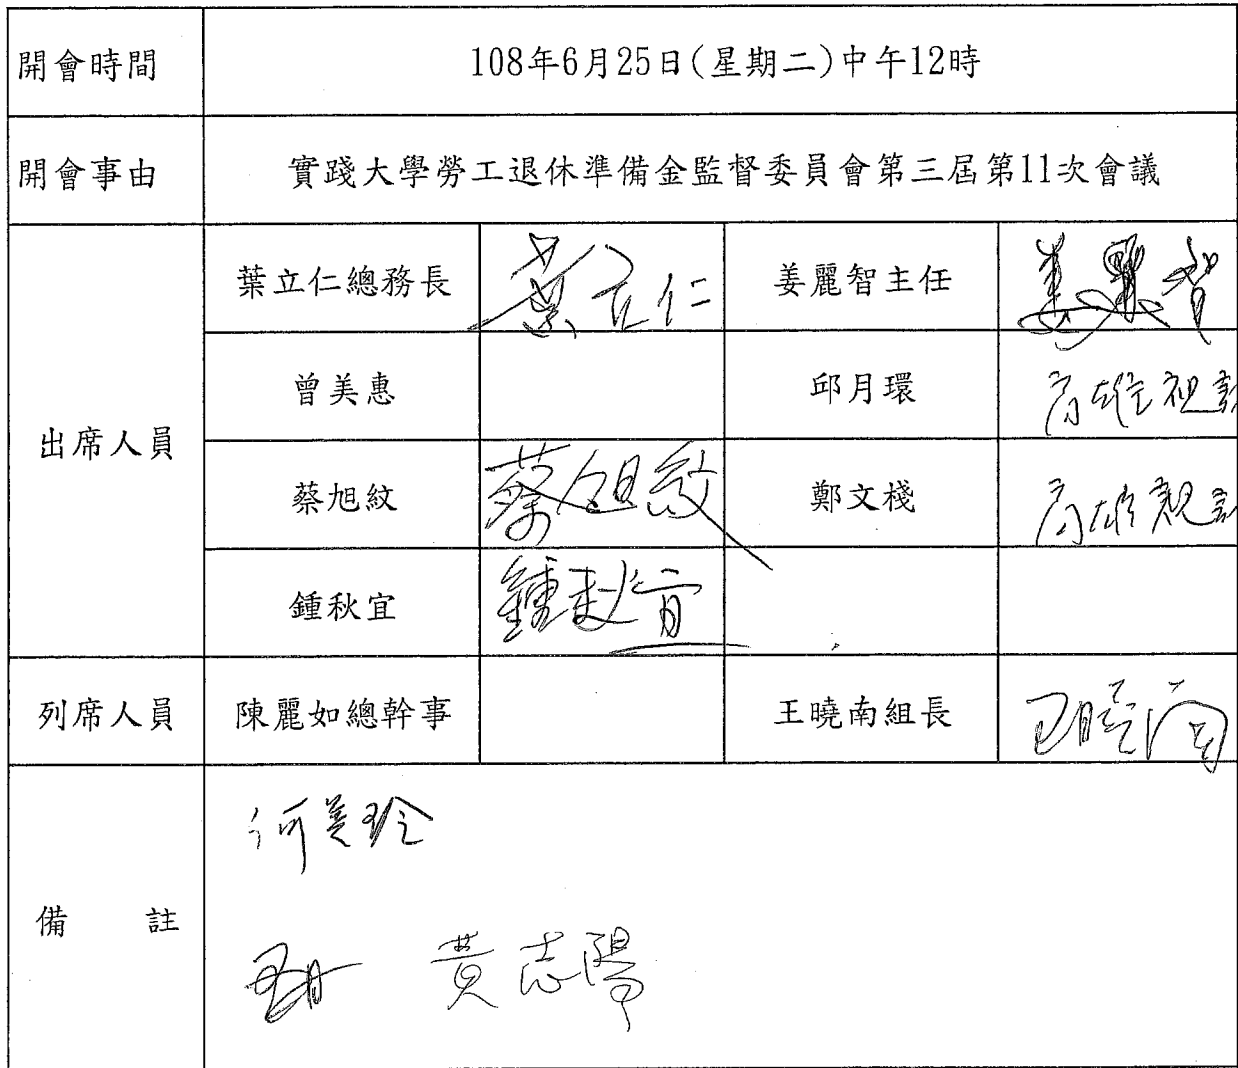 開會時間 108年6月25日(星期二)中午12時
開會事由 實踐大學勞工退休準備金監督委員會第三屆第11次會議
出席人員
葉立仁總務長 葉立仁 姜麗智主任 姜麗智
曾美惠 邱月環 高雄視訊
蔡旭紋 蔡旭紋 鄭文棧 高雄視訊
鍾秋宜 鍾秋宜
列席人員 陳麗如總幹事 王曉南組長 王曉南
備 註
何美玲
黃志陽